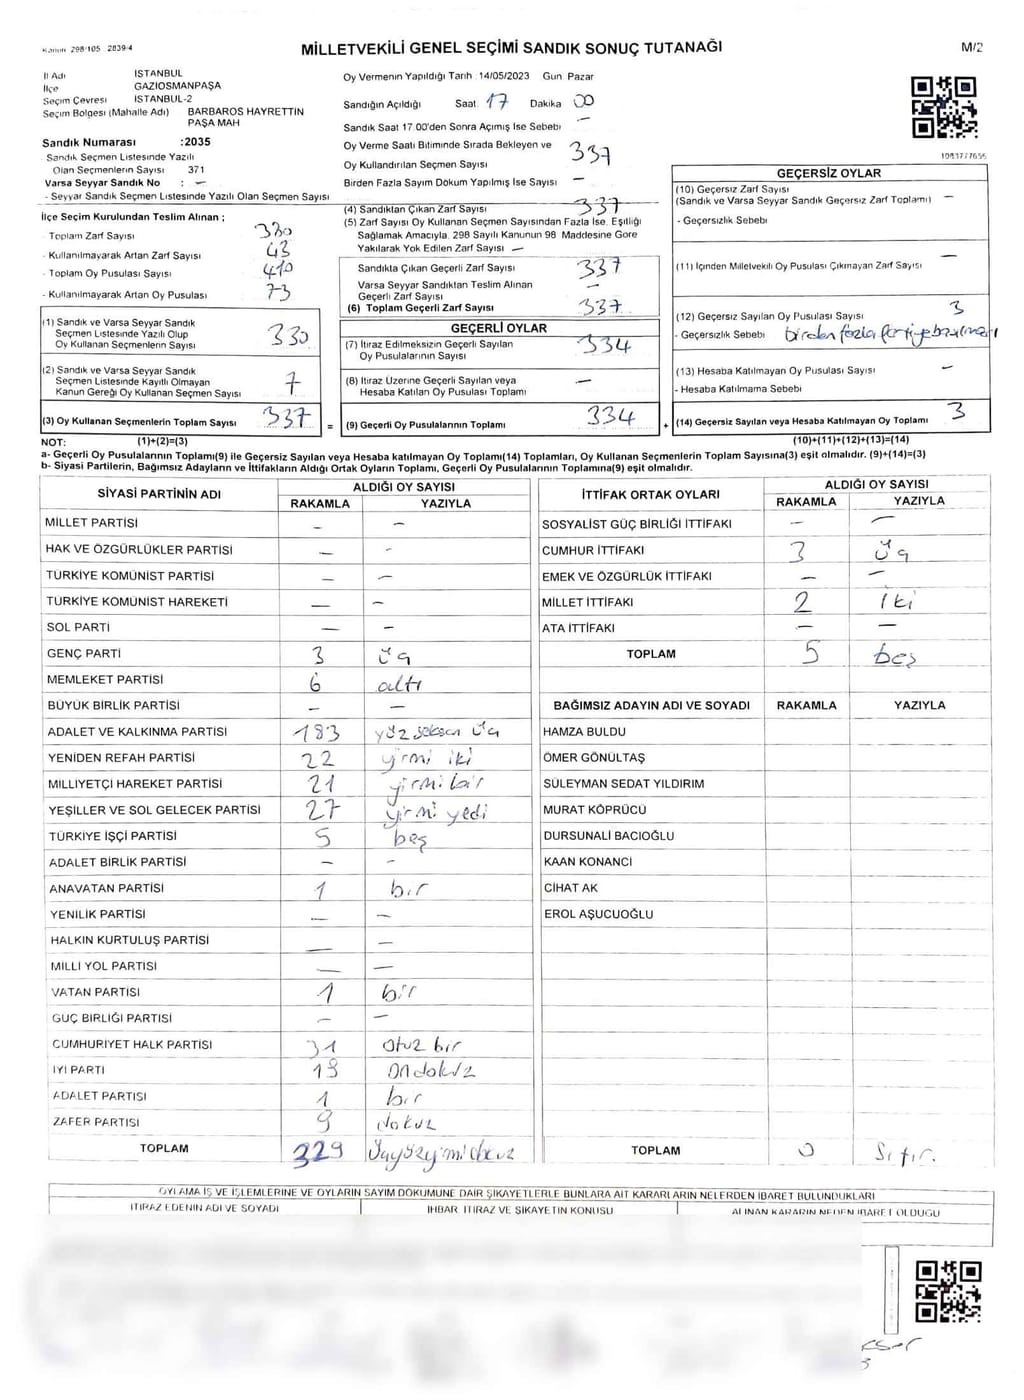 Kanun 298/105 2839/4
MİLLETVEKİLİ GENEL SEÇİMİ SANDIK SONUÇ TUTANAĞI
M/2
İl Adı İSTANBUL
İlçe GAZİOSMANPAŞA
Seçim Çevresi İSTANBUL-2
Seçim Bölgesi (Mahalle Adı) BARBAROS HAYRETTİN
PAŞA MAH
Sandık Numarası :2035
- Sandık Seçmen Listesinde Yazılı
Olan Seçmenlerin Sayısı 371
Varsa Seyyar Sandık No : -
- Seyyar Sandık Seçmen Listesinde Yazılı Olan Seçmen Sayısı
İlçe Seçim Kurulundan Teslim Alınan ;
- Toplam Zarf Sayısı 380
- Kullanılmayarak Artan Zarf Sayısı 43
- Toplam Oy Pusulası Sayısı 410
- Kullanılmayarak Artan Oy Pusulası 73
(1) Sandık ve Varsa Seyyar Sandık
Seçmen Listesinde Yazılı Olup
Oy Kullanan Seçmenlerin Sayısı 330
(2) Sandık ve Varsa Seyyar Sandık
Seçmen Listesinde Kayıtlı Olmayan
Kanun Gereği Oy Kullanan Seçmen Sayısı 7
(3) Oy Kullanan Seçmenlerin Toplam Sayısı 337
Oy Vermenin Yapıldığı Tarih :14/05/2023 Gün Pazar
Sandığın Açıldığı Saat 17 Dakika 00
Sandık Saat 17 00'den Sonra Açımış İse Sebebi -
Oy Verme Saati Bitiminde Sırada Bekleyen ve
Oy Kullandırılan Seçmen Sayısı 337
Birden Fazla Sayım Döküm Yapılmış İse Sayısı -
(4) Sandıktan Çıkan Zarf Sayısı 337
(5) Zarf Sayısı Oy Kullanan Seçmen Sayısından Fazla İse, Eşitliği
Sağlamak Amacıyla, 298 Sayılı Kanunun 98 Maddesine Göre
Yakılarak Yok Edilen Zarf Sayısı -
Sandıkta Çıkan Geçerli Zarf Sayısı 337
Varsa Seyyar Sandıktan Teslim Alınan
Geçerli Zarf Sayısı -
(6) Toplam Geçerli Zarf Sayısı 337
GEÇERLİ OYLAR
(7) İtiraz Edilmeksizin Geçerli Sayılan
Oy Pusulalarının Sayısı 334
(8) İtiraz Üzerine Geçerli Sayılan veya
Hesaba Katılan Oy Pusulası Toplamı -
= (9) Geçerli Oy Pusulalarının Toplamı 334
1081777655
GEÇERSİZ OYLAR
(10) Geçersiz Zarf Sayısı
(Sandık ve Varsa Seyyar Sandık Geçersiz Zarf Toplamı) -
- Geçersizlik Sebebi
(11) İçinden Milletvekili Oy Pusulası Çıkmayan Zarf Sayısı -
(12) Geçersiz Sayılan Oy Pusulası Sayısı 3
- Geçersizlik Sebebi birden fazla partiye basılması
(13) Hesaba Katılmayan Oy Pusulası Sayısı -
- Hesaba Katılmama Sebebi
+ (14) Geçersiz Sayılan veya Hesaba Katılmayan Oy Toplamı 3
NOT: (1)+(2)=(3) (10)+(11)+(12)+(13)=(14)
a- Geçerli Oy Pusulalarının Toplamı(9) ile Geçersiz Sayılan veya Hesaba katılmayan Oy Toplamı(14) Toplamları, Oy Kullanan Seçmenlerin Toplam Sayısına(3) eşit olmalıdır. (9)+(14)=(3)
b- Siyasi Partilerin, Bağımsız Adayların ve İttifakların Aldığı Ortak Oyların Toplamı, Geçerli Oy Pusulalarının Toplamına(9) eşit olmalıdır.
SİYASİ PARTİNİN ADI ALDIĞI OY SAYISI
RAKAMLA YAZIYLA
MİLLET PARTİSİ - -
HAK VE ÖZGÜRLÜKLER PARTİSİ - -
TÜRKİYE KOMÜNİST PARTİSİ - -
TÜRKİYE KOMÜNİST HAREKETİ - -
SOL PARTİ - -
GENÇ PARTİ 3 üç
MEMLEKET PARTİSİ 6 altı
BÜYÜK BİRLİK PARTİSİ - -
ADALET VE KALKINMA PARTİSİ 183 yüz seksen üç
YENİDEN REFAH PARTİSİ 22 yirmi iki
MİLLİYETÇİ HAREKET PARTİSİ 21 yirmi bir
YEŞİLLER VE SOL GELECEK PARTİSİ 27 yirmi yedi
TÜRKİYE İŞÇİ PARTİSİ 5 beş
ADALET BİRLİK PARTİSİ - -
ANAVATAN PARTİSİ 1 bir
YENİLİK PARTİSİ - -
HALKIN KURTULUŞ PARTİSİ - -
MİLLİ YOL PARTİSİ - -
VATAN PARTİSİ 1 bir
GÜÇ BİRLİĞİ PARTİSİ - -
CUMHURİYET HALK PARTİSİ 31 otuz bir
İYİ PARTİ 19 ondokuz
ADALET PARTİSİ 1 bir
ZAFER PARTİSİ 9 dokuz
TOPLAM 329 üçyüzyirmidokuz
İTTİFAK ORTAK OYLARI ALDIĞI OY SAYISI
RAKAMLA YAZIYLA
SOSYALİST GÜÇ BİRLİĞİ İTTİFAKI - -
CUMHUR İTTİFAKI 3 üç
EMEK VE ÖZGÜRLÜK İTTİFAKI - -
MİLLET İTTİFAKI 2 iki
ATA İTTİFAKI - -
TOPLAM 5 beş
BAĞIMSIZ ADAYIN ADI VE SOYADI RAKAMLA YAZIYLA
HAMZA BULDU
ÖMER GÖNÜLTAŞ
SÜLEYMAN SEDAT YILDIRIM
MURAT KÖPRÜCÜ
DURSUNALİ BACIOĞLU
KAAN KONANCI
CİHAT AK
EROL AŞUCUOĞLU
TOPLAM 0 Sıfır.
OYLAMA İŞ VE İŞLEMLERİNE VE OYLARIN SAYIM DÖKÜMÜNE DAİR ŞİKAYETLERLE BUNLARA AİT KARARLARIN NELERDEN İBARET BULUNDUKLARI
İTİRAZ EDENİN ADI VE SOYADI İHBAR İTİRAZ VE ŞİKAYETİN KONUSU ALINAN KARARIN NEDEN İBARET OLDUĞU